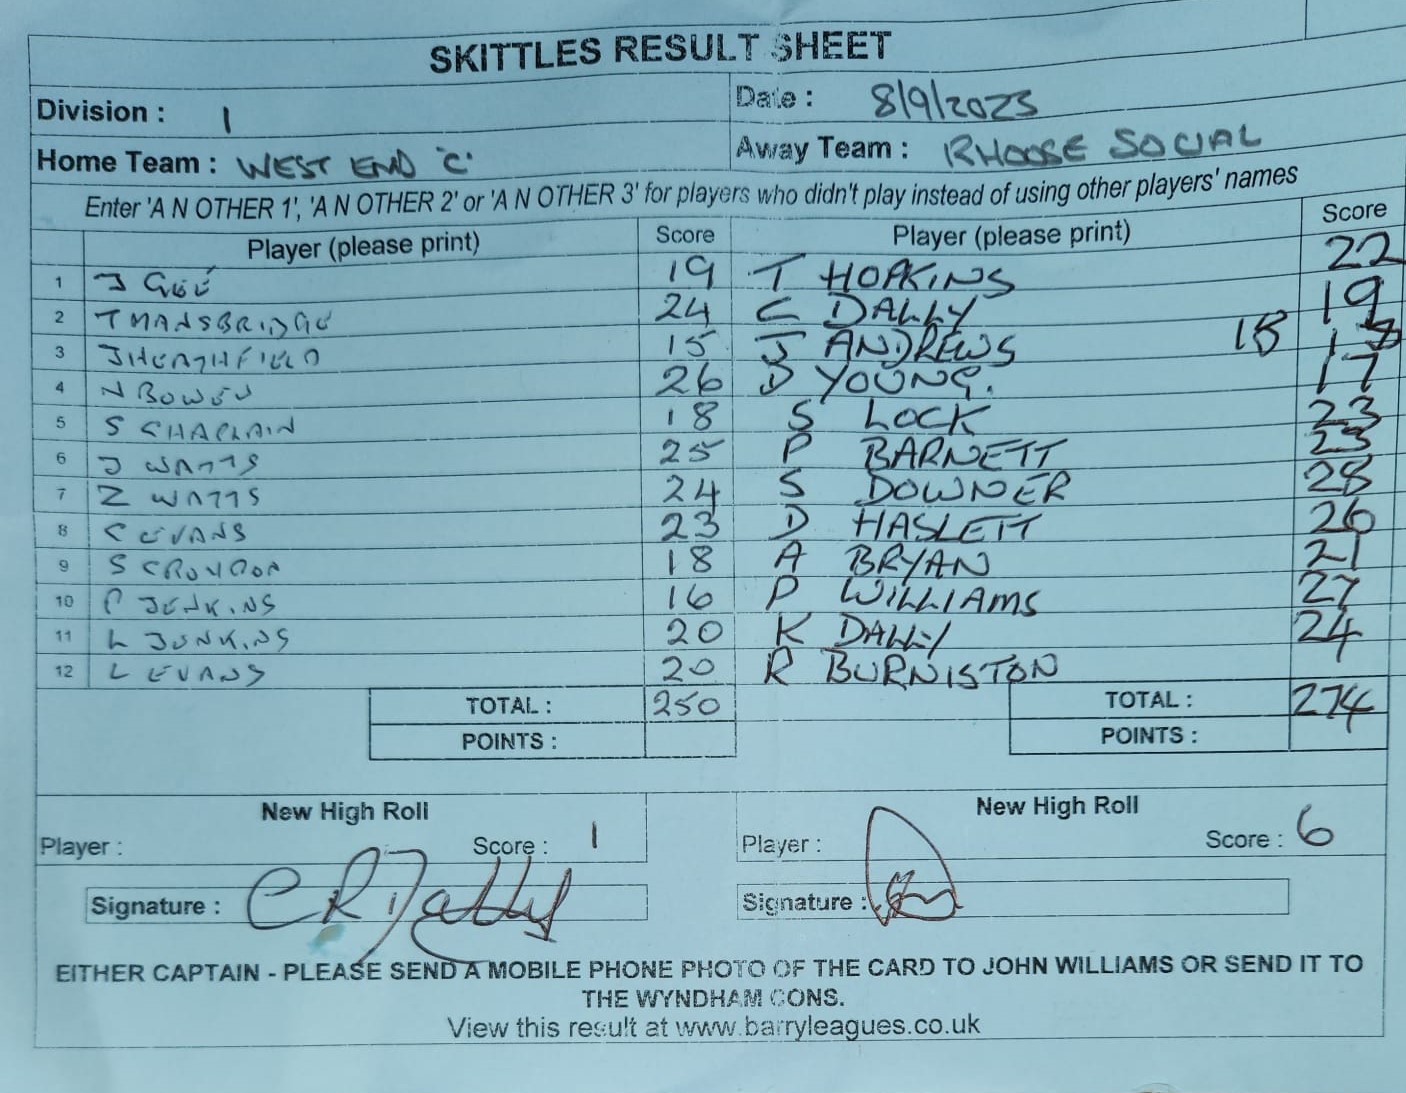 SKITTLES RESULT SHEET
Division : 1 Date : 8/9/2023
Home Team : WEST END 'C' Away Team : RHOOSE SOCIAL
Enter 'A N OTHER 1', 'A N OTHER 2' or 'A N OTHER 3' for players who didn't play instead of using other players' names
Player (please print) Score Player (please print) Score
1 J GEE 19 T HOPKINS 22
2 T MANSBRIDGE 24 C DALLY 19
3 J HEATHFIELD 15 J ANDREWS 18 18
4 N BOWEN 26 D YOUNG. 17
5 S CHAPLAIN 18 S LOCK 23
6 J WATTS 25 P BARNETT 23
7 Z WATTS 24 S DOWNER 28
8 C EVANS 23 D HASLETT 26
9 S CROYDON 18 A BRYAN 21
10 P JENKINS 16 P WILLIAMS 27
11 L JENKINS 20 K DALLY 24
12 L EVANS 20 R BURNISTON
TOTAL : 250 TOTAL : 274
POINTS : POINTS :
New High Roll New High Roll
Player : Score : 1 Player : Score : 6
Signature : C R Dally Signature :
EITHER CAPTAIN - PLEASE SEND A MOBILE PHONE PHOTO OF THE CARD TO JOHN WILLIAMS OR SEND IT TO
THE WYNDHAM CONS.
View this result at www.barryleagues.co.uk